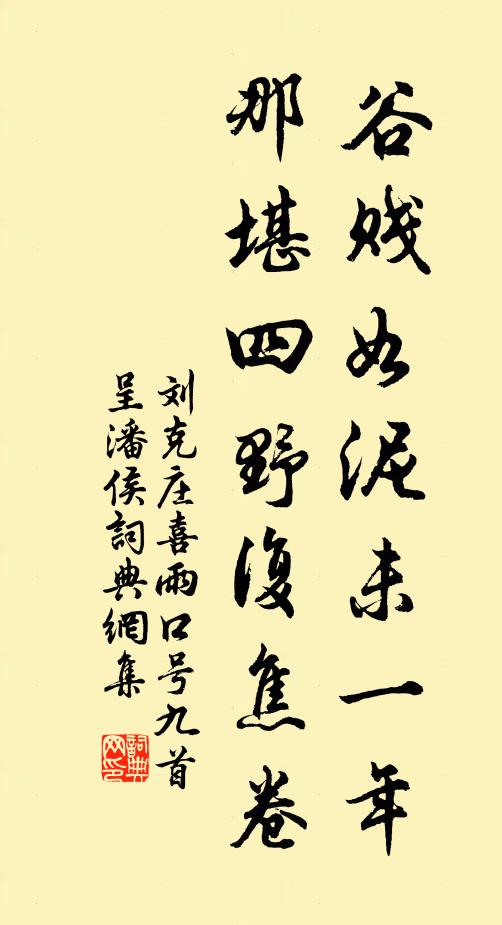 谷贱如泥未一年
那堪四野復焦卷
刘克庄喜雨口号九首
呈潘侯詞典網集
詞典
网印